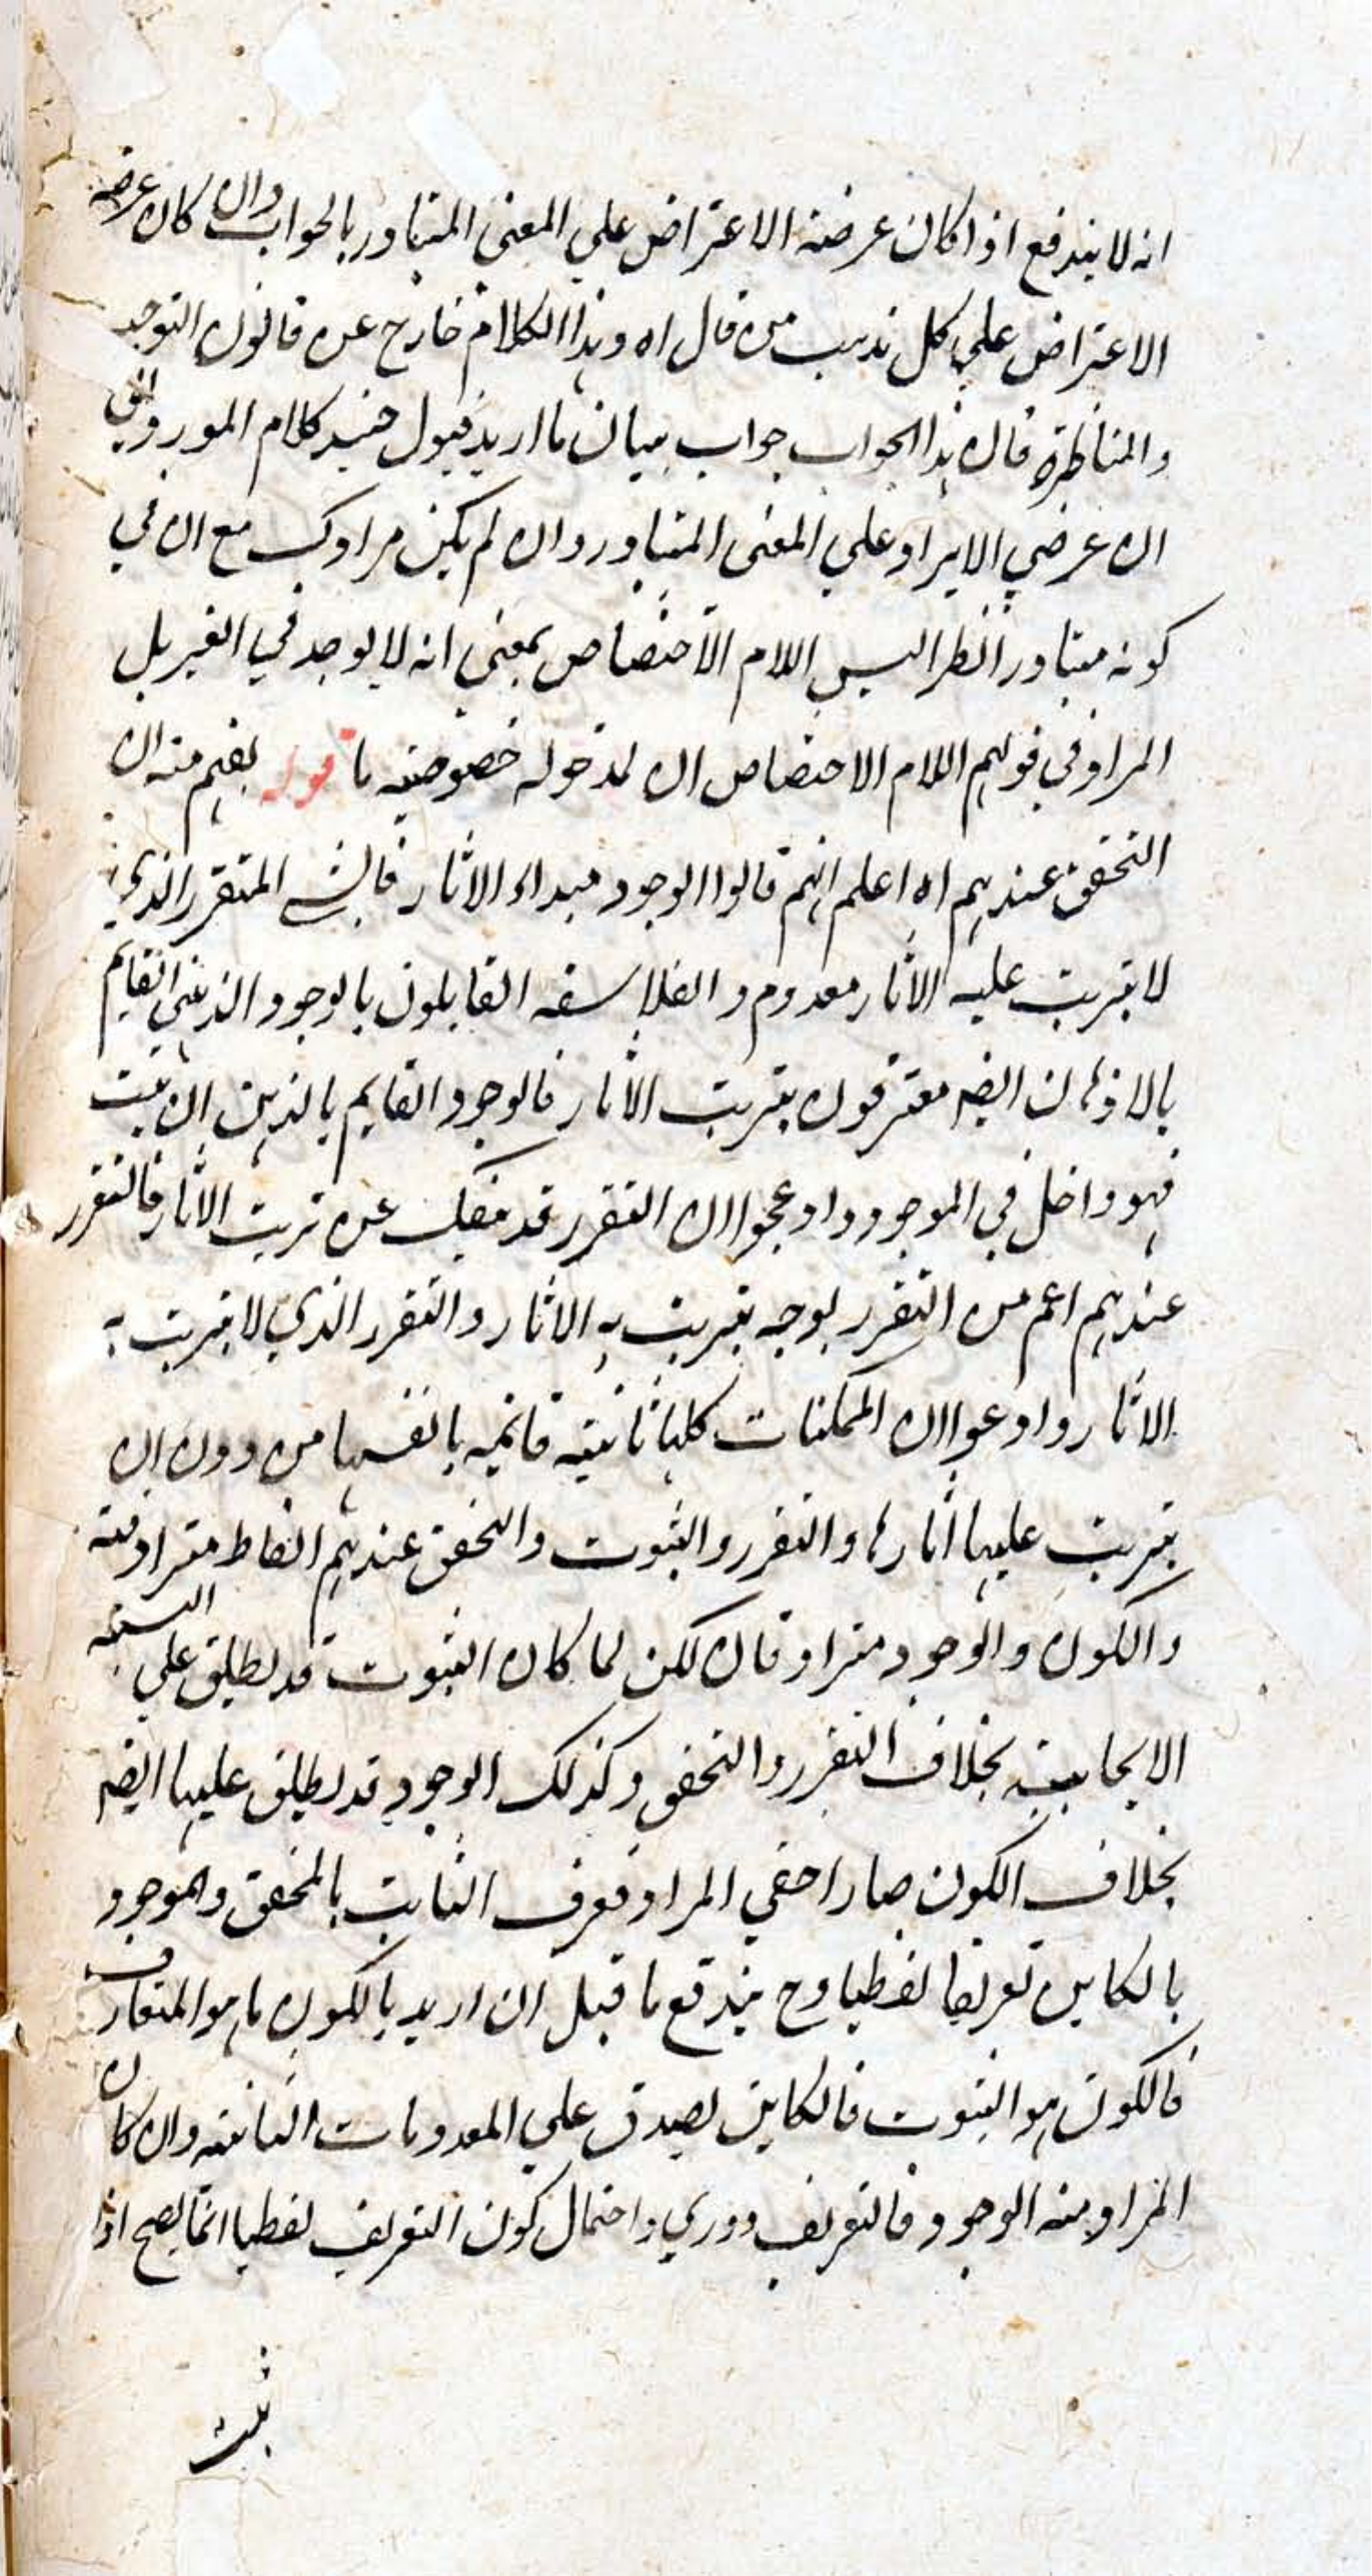 انه لا يندفع اذا كان عرضه الاعتراض علي المعني المتبادر بالجواب وان كان عرضه
الاعتراض علي كل مذهب من قال اه وهذا الكلام خارج عن قانون التوجيه
والمناظرة فان هذا الجواب جواب ببيان ما اريد فيول حينئذ كلام المورد الي
ان عرضي الايراد علي المعني المتبادر وان لم يكن مرادك مع ان في
كونه متبادرا نظر اليس اللام الاختصاص بمعني انه لا يوجد في الغير بل
المراد في قولهم اللام الاختصاص ان لمدخوله خصوصيه ما قوله يفهم منه ان
التحقق عندهم اه اعلم انهم قالوا الوجود مبداء الاثار فالشي المتقرر الذي
لا يترتب عليه الاثار معدوم والفلاسفه القايلون بالوجود الذهني القايم
بالاذهان ايضه معترفون بترتب الاثار فالوجود القايم بالذهن ان ثبت
فهو داخل في الموجود وادعوا ان التقرر قد ينفك عن ترتب الاثار فالتقرر
عندهم اعم من التقرر بوجه يترتب به الاثار والتقرر الذي لا يترتب به
الاثار وادعوا ان الممكنات كلها ثابتيه قائميه بانفسها من دون ان
يترتب عليها اثارها والتقرر والثبوت والتحقق عندهم الفاظ مترادفته
والكون والوجود مترادفان لكن لما كان الثبوت قد يطلق علي النسبته
الايجابيته بخلاف التقرر والتحقق وكذلك الوجود قد يطلق عليها ايضه
بخلاف الكون صارا خفي المراد فعرف الثابت بالمتحقق والموجود
بالكاين تعريفا لفظيا وح يندفع ما قيل ان اريد بالكون ما هو المتعارف
فالكون هو الثبوت فالكاين يصدق علي المعدومات الثابته وان كان
المراد منه الوجود فالتعريف دوري واحتمال كون التعريف لفظيا انما يصح اذا
ثبت